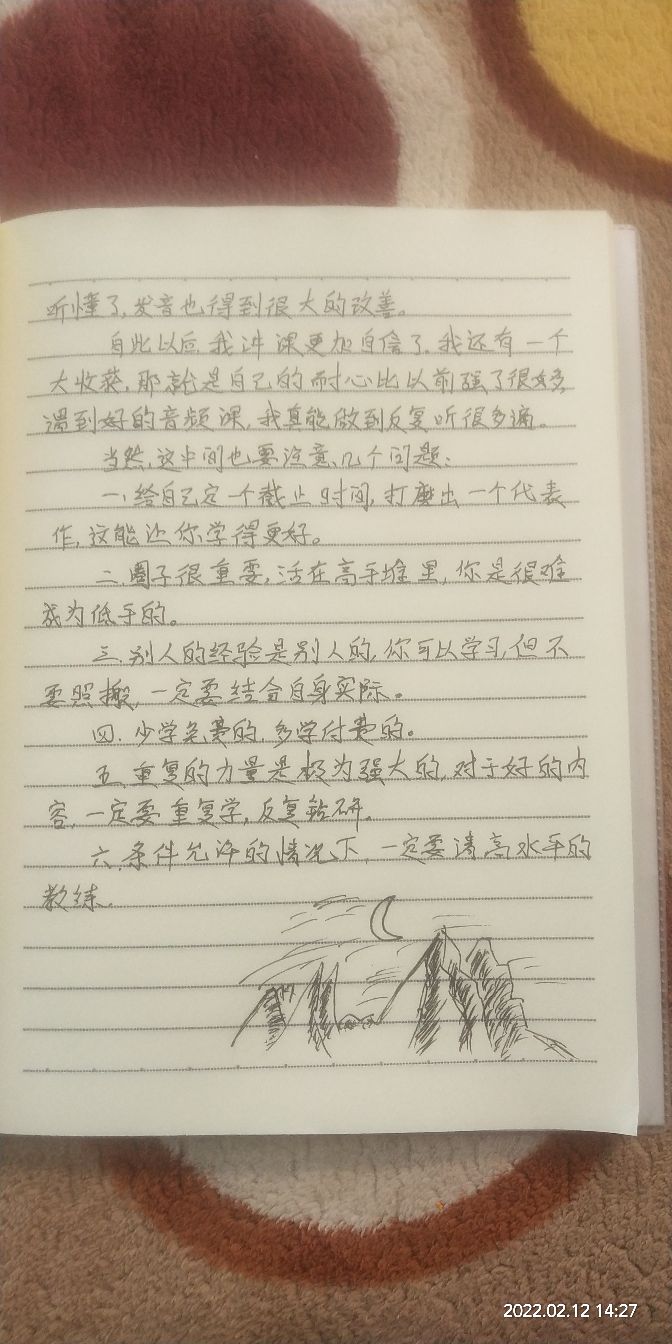 听懂了,发音也得到很大的改善。
自此以后,我讲课更加自信了。我还有一个
大收获,那就是自己的耐心比以前强了很多,
遇到好的音频课,我真能做到反复听很多遍。
当然,这中间也要注意几个问题:
一、给自己定一个截止时间,打磨出一个代表
作,这能让你学得更好。
二、圈子很重要,活在高手堆里,你是很难
成为低手的。
三、别人的经验是别人的,你可以学习,但不
要照搬,一定要结合自身实际。
四、少学免费的,多学付费的。
五、重复的力量是极为强大的,对于好的内
容,一定要重复学,反复钻研。
六、条件允许的情况下,一定要请高水平的
教练。
2022.02.12 14:27